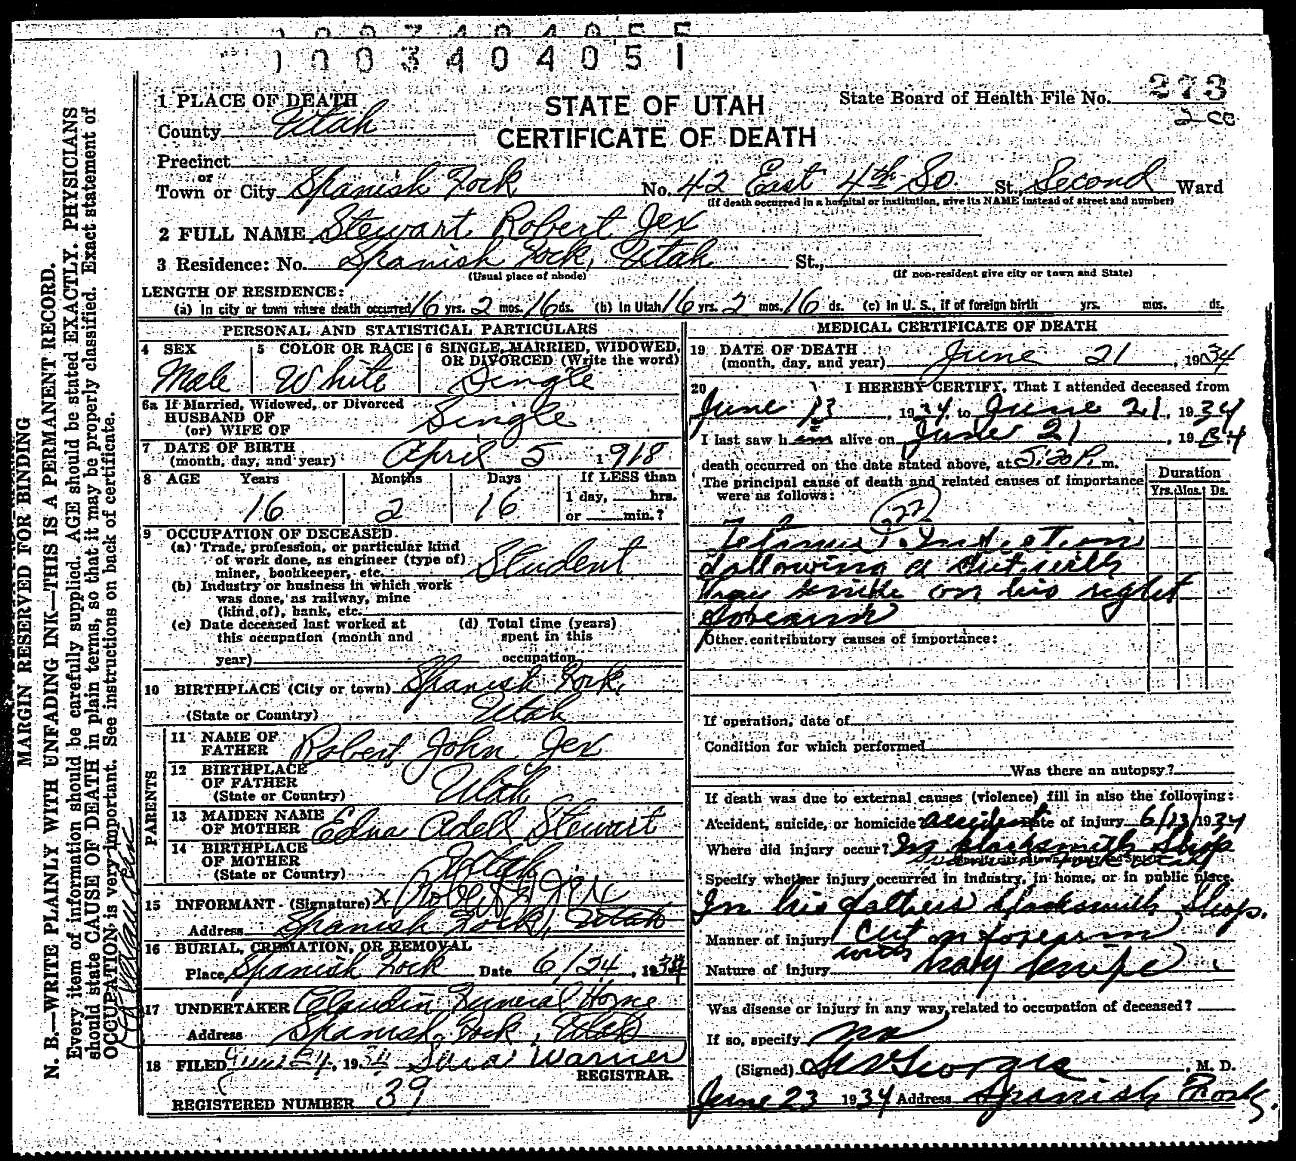 1003404051
STATE OF UTAH
CERTIFICATE OF DEATH
State Board of Health File No. 273
200
1 PLACE OF DEATH
County Utah
Precinct
or
Town or City Spanish Fork No. 42 East 4th So St., Second Ward
(If death occurred in a hospital or institution, give its NAME instead of street and number)
2 FULL NAME Stewart Robert Jex
3 Residence: No. Spanish Fork, Utah St.,
(Usual place of abode) (If non-resident give city or town and State)
LENGTH OF RESIDENCE:
(a) In city or town where death occurred 16 yrs. 2 mos. 16 ds. (b) In Utah 16 yrs. 2 mos. 16 ds. (c) In U. S., if of foreign birth yrs. mos. ds.
PERSONAL AND STATISTICAL PARTICULARS
4 SEX Male
5 COLOR OR RACE White
6 SINGLE, MARRIED, WIDOWED, OR DIVORCED (Write the word) Single
6a If Married, Widowed, or Divorced
HUSBAND OF
(or) WIFE OF Single
7 DATE OF BIRTH
(month, day, and year) April 5 1918
8 AGE Years Months Days If LESS than
16 2 16 1 day, hrs.
or min.?
9 OCCUPATION OF DECEASED
(a) Trade, profession, or particular kind
of work done, as engineer (type of)
miner, bookkeeper, etc. Student
(b) Industry or business in which work
was done, as railway, mine
(kind of), bank, etc.
(c) Date deceased last worked at
this occupation (month and
year)
(d) Total time (years)
spent in this
occupation
10 BIRTHPLACE (City or town) Spanish Fork,
(State or Country) Utah
PARENTS
11 NAME OF
FATHER Robert John Jex
12 BIRTHPLACE
OF FATHER
(State or Country) Utah
13 MAIDEN NAME
OF MOTHER Edna Adell Stewart
14 BIRTHPLACE
OF MOTHER
(State or Country) Utah
15 INFORMANT (Signature) X Robert J Jex
Address Spanish Fork, Utah
16 BURIAL, CREMATION, OR REMOVAL
Place Spanish Fork Date 6/24, 1934
17 UNDERTAKER Claudin Funeral Home
Address Spanish Fork, Utah
18 FILED June 24, 1934 Sara Warner
REGISTRAR.
REGISTERED NUMBER 39
MEDICAL CERTIFICATE OF DEATH
19 DATE OF DEATH
(month, day, and year) June 21, 1934
20 I HEREBY CERTIFY, That I attended deceased from
June 13, 1934, to June 21, 1934
I last saw him alive on June 21, 1934
death occurred on the date stated above, at 5:20 P. m.
The principal cause of death and related causes of importance
were as follows:
Duration
Yrs. Mos. Ds.
22
Tetanus Infection
following a cut with
Hay knife on his right
forearm
Other contributory causes of importance:
If operation, date of
Condition for which performed
Was there an autopsy?
If death was due to external causes (violence) fill in also the following:
Accident, suicide, or homicide? accident Date of injury 6/13, 1934
Where did injury occur? In blacksmith Shop
Specify whether injury occurred in industry, in home, or in public place.
In his fathers blacksmith Shop.
Manner of injury Cut on forearm
Nature of injury with hay knife
Was disease or injury in any way related to occupation of deceased?
If so, specify no
(Signed) , M. D.
June 23 1934 Address Spanish Fork.
MARGIN RESERVED FOR BINDING
N. B.—WRITE PLAINLY WITH UNFADING INK—THIS IS A PERMANENT RECORD.
Every item of information should be carefully supplied. AGE should be stated EXACTLY. PHYSICIANS
should state CAUSE OF DEATH in plain terms, so that it may be properly classified. Exact statement of
OCCUPATION is very important. See instructions on back of certificate.